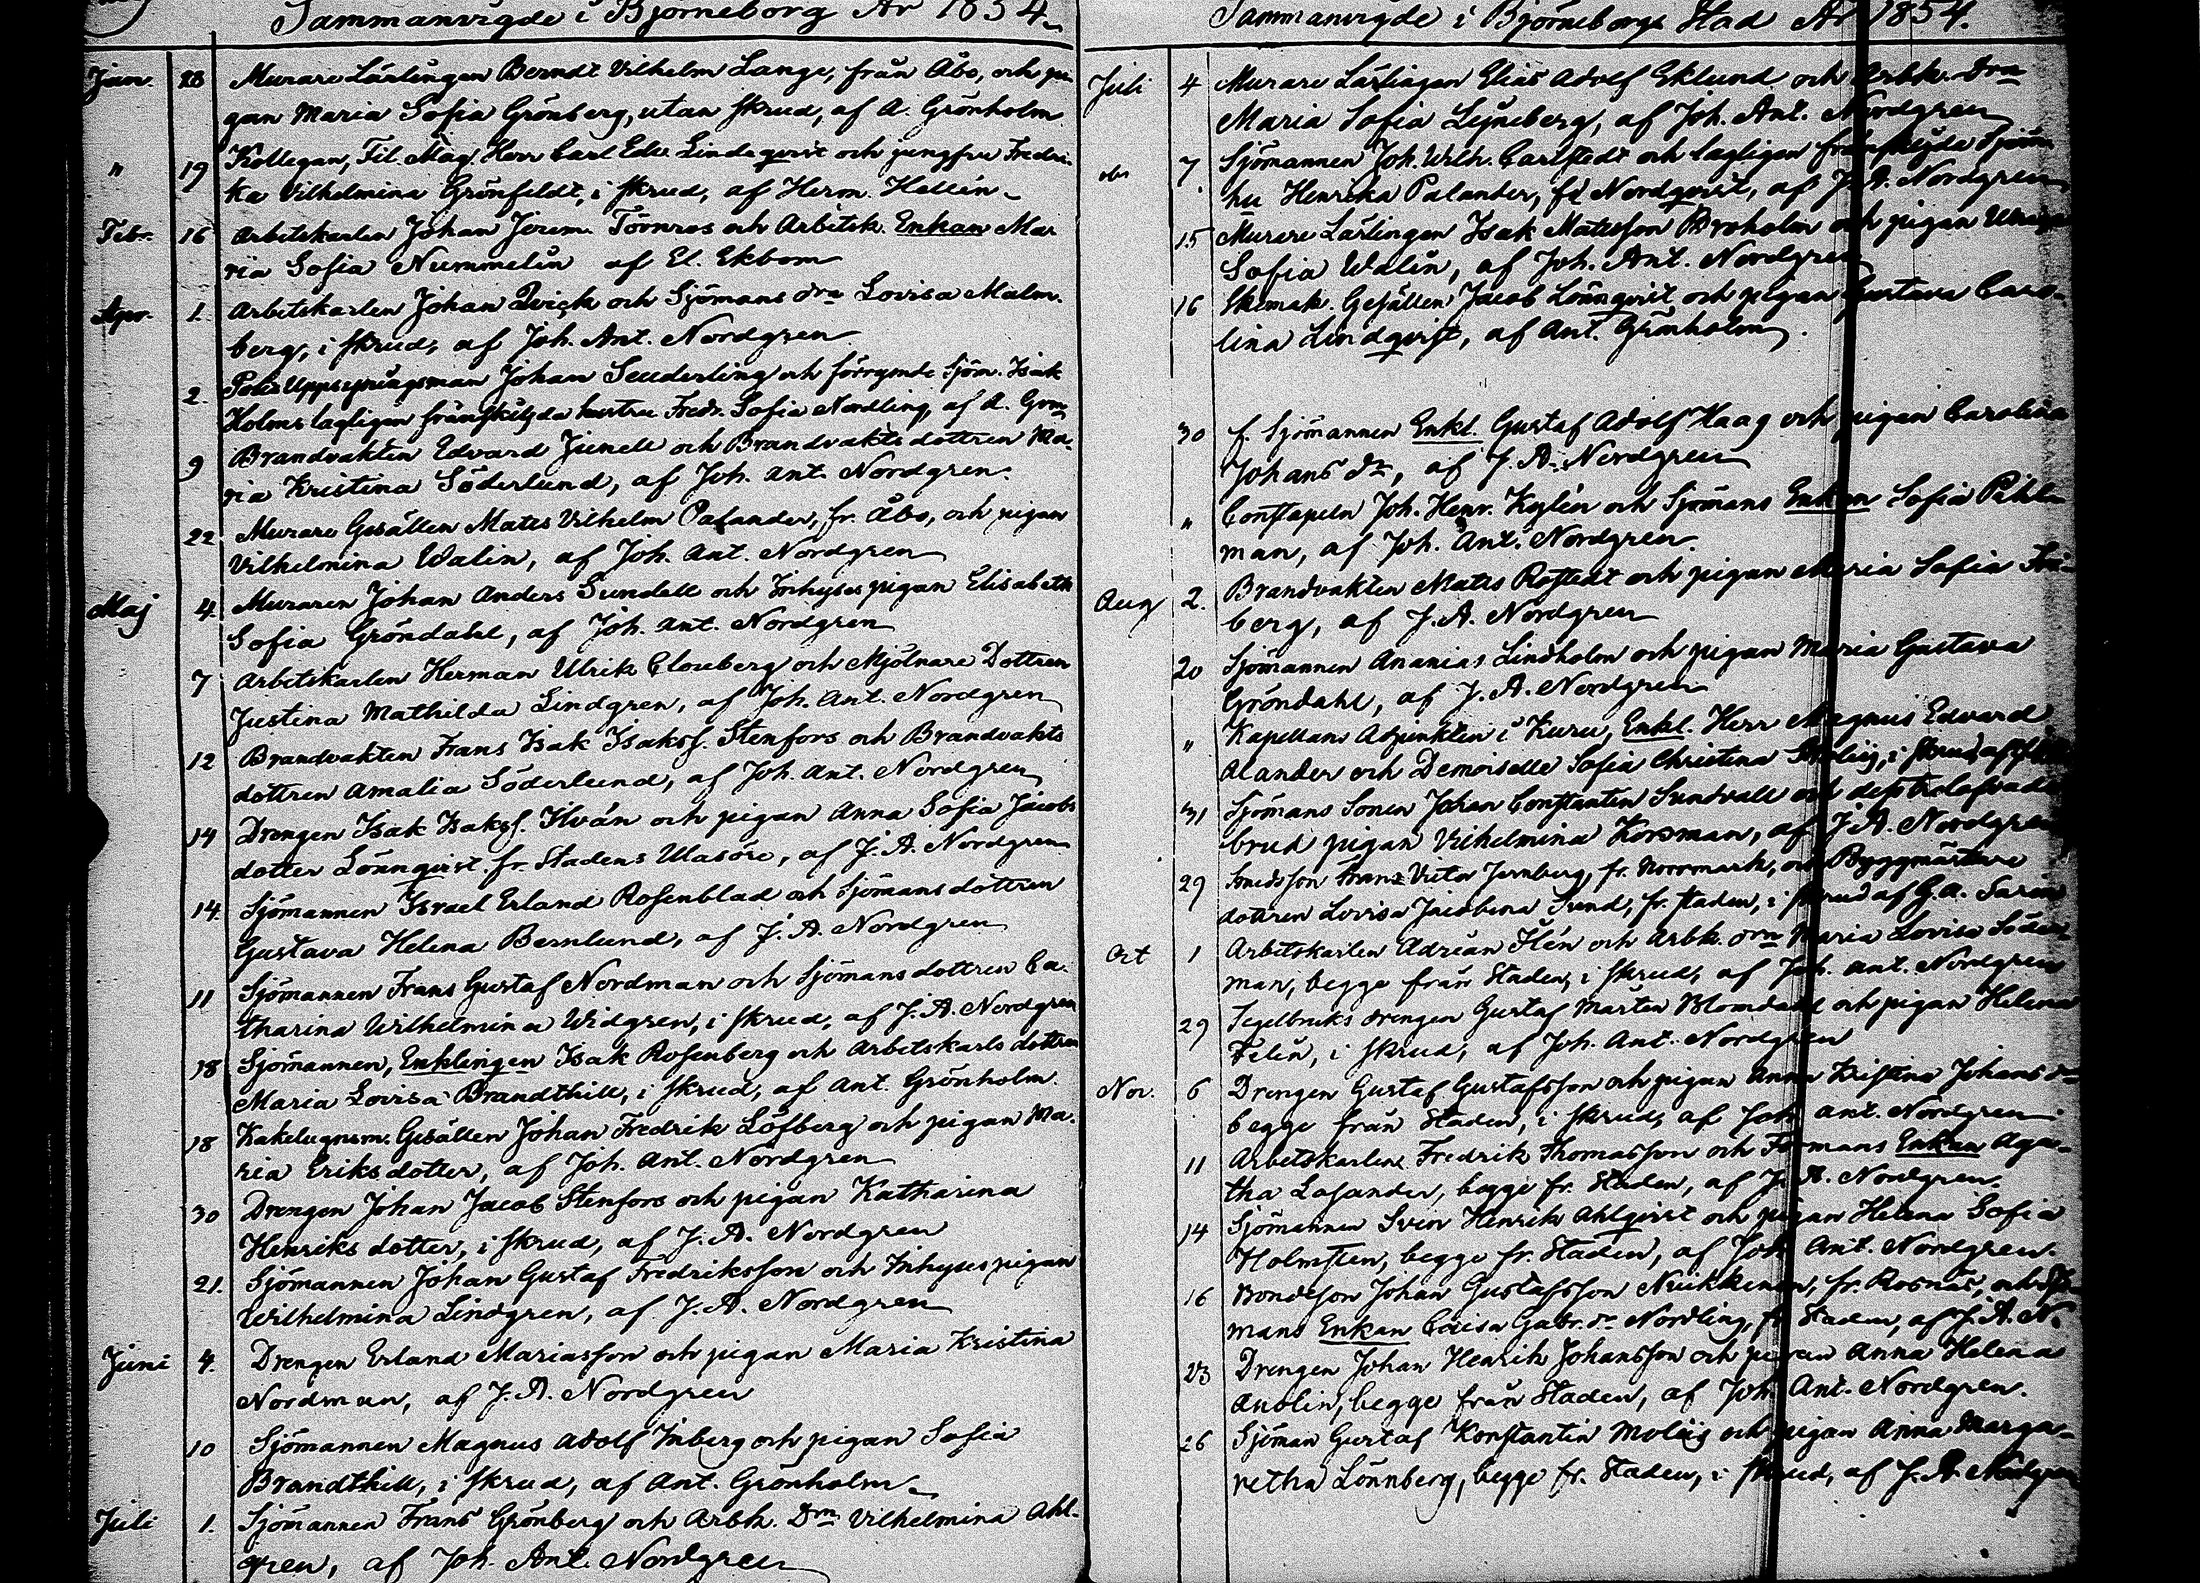 Sammanvigde i Björneborg År 1854.
Jan. 28 Murare Lärlingen Berndt Vilhelm Lange, från Åbo, och pi
gan Maria Sofia Grönberg, utan skrud, af A. Grönholm
" 19 Kollegan, Fil. Mag. Herr Carl Edv. Lindeqvist och jungfru Fredri-
ka Vilhelmina Grönfeldt, i skrud, af Herm. Hellén
Febr. 16 Arbetskarlen Johan Jerem. Törnros och Arbetsk. Enkan Ma
ria Sofia Nummelin af El. Ekbom
Apr. 1. Arbetskarlen Johan Qvick och Sjömans dra Lovisa Malm-
berg, i skrud, af Joh. Ant. Nordgren
2. Polis Uppsyningsman Johan Seuderling och förrymde Sjöm. Isak
Holms lagligen frånskilda hustru Fredr. Sofia Nordling, af A. Grm
9 Brandvakten Edvard Junell och Brandvakts dottren Ma-
ria Kristina Söderlund, af Joh. Ant. Nordgren.
22 Murare Gesällen Mats Vilhelm Palander, fr. Åbo, och pigan
Vilhelmina Walin, af Joh. Ant. Nordgren
Maj 4. Muraren Johan Anders Sundell och Inhyses pigan Elisabeth
Sofia Gröndahl, af Joh. Ant. Nordgren
7 Arbetskarlen Herman Ulrik Clouberg och Mjölnare Dottren
Justina Mathilda Lindgren, af Joh. Ant. Nordgren
12 Brandvakten Frans Isak Isakss. Stenfors och Brandvakts
dottren Amalia Söderlund, af Joh. Ant. Nordgren
14 Drengen Isak Isakss. Ilvån och pigan Anna Sofia Jacobs
dotter Lönnqvist fr. Stadens Ulasöre, af J. A. Nordgren
14. Sjömannen Israel Erland Rosenblad och Sjömans dottren
Gustava Helena Bernlund, af J. A. Nordgren
11 Sjömannen Frans Gustaf Nordman och Sjömans dottren Ca-
tharina Wilhelmina Widgren, i skrud, af J. A. Nordgren
18 Sjömannen, Enklingen Isak Rosenberg och Arbetskarls dottren
Maria Lovisa Brandthill, i skrud, af Ant. Grönholm.
18 Kakelugnsm. Gesällen Johan Fredrik Löfberg och pigan Ma-
ria Eriks dotter, af Joh. Ant. Nordgren
30 Drengen Johan Jacob Stenfors och pigan Katharina
Henriks dotter, i skrud, af J. A. Nordgren
21. Sjömannen Johan Gustaf Fredriksson och Inhyses pigan
Wilhelmina Lindgren, af J. A. Nordgren
Juni 4. Drengen Erland Mariasson och pigan Maria Kristina
Nordman, af J. A. Nordgren
10 Sjömannen Magnus Adolf Inberg och pigan Sofia
Brandthill, i skrud, af Ant. Grönholm
Juli 1. Sjömannen Frans Grönberg och Arbk. Drn Vilhelmina Ahl-
gren, af Joh. Ant. Nordgren
Sammanvigde i Björneborgs Stad År 1854.
Juli 4 Murare Lärlingen Elias Adolf Eklund och Arbk. dra
Maria Sofia Ljungberg, af Joh. Ant. Nordgren
7. Sjömannen Joh. Wilh. Carlstedt och lagligen frånskilda Sjöm
hu Henrika Palander, fd Nordqvist, af J. A. Nordgren
15 Murare Lärlingen Isak Matsson Broholm och pigan
Sofia Walin, af Joh. Ant. Nordgren
16 Skomak. Gesällen Jacob Lönnqvist och pigan Gustava Caro-
lina Lindqvist, af Ant. Grönholm.
30 f. Sjömannen Enkl. Gustaf Adolf Haag och pigan Carolina
Johans dr, af J. A. Nordgren
" Constapeln Joh. Henr. Kylén och Sjömans Enkan Sofia Pihl
man, af Joh. Ant. Nordgren.
Aug 2. Brandvakten Mats Rostedt och pigan Maria Sofia
berg, af J. A. Nordgren
20 Sjömannen Ananias Lindholm och pigan Maria Gustava
Gröndahl, af J. A. Nordgren
" Kapellans Adjunkten i Kuru, Enkl. Herr Magnus Edvard
Alander och Demoiselle Sofia Christina i skrud, af
31 Sjömans Sonen Johan Constantin Sundvall och
brud pigan Vilhelmina Korsman, af J. A. Nordgren
29 Smedsson Frans Victor Jernberg, fr. Norrmark, och Byggmästare
dottren Lovisa Jacobina Sund, fr. staden, i skrud af G. A.
Oct 1 Arbetskarlen Adrian Ilén och Arbk. drn Maria Lovisa Söder-
man, begge från Staden, i skrud, af Joh. Ant. Nordgren
29 Tegelbruks drengen Gustaf Mårten Blomdahl och pigan Helena
Felin, i skrud, af Joh. Ant. Nordgren
Nov. 6 Drengen Gustaf Gustafsson och pigan Anna Kristina Johans dr
begge från Staden, i skrud, af Joh. Ant. Nordgren
11 Arbetskarlen Fredrik Thomasson och Formans Enkan Aga-
tha Lasander, begge fr. Staden, af J. A. Nordgren.
14 Sjömannen Sven Henrik Ahlqvist och pigan Helena Sofia
Holmsten, begge fr. Staden, af Joh. Ant. Nordgren.
16 Bondeson Johan Gustafsson Niukkinen, fr. Rosnäs, och Sjö
mans Enkan Caisa Gabr. dr Nordling, fr Staden, af J. A. N.
23 Drengen Johan Henrik Johansson och pigan Anna Helena
Anolin, begge från Staden, af Joh. Ant. Nordgren.
26 Sjöman Gustaf Konstantin Moliis och pigan Anna Marga-
retha Lönnberg, begge fr. Staden, i skrud, af J. A. Nordgren